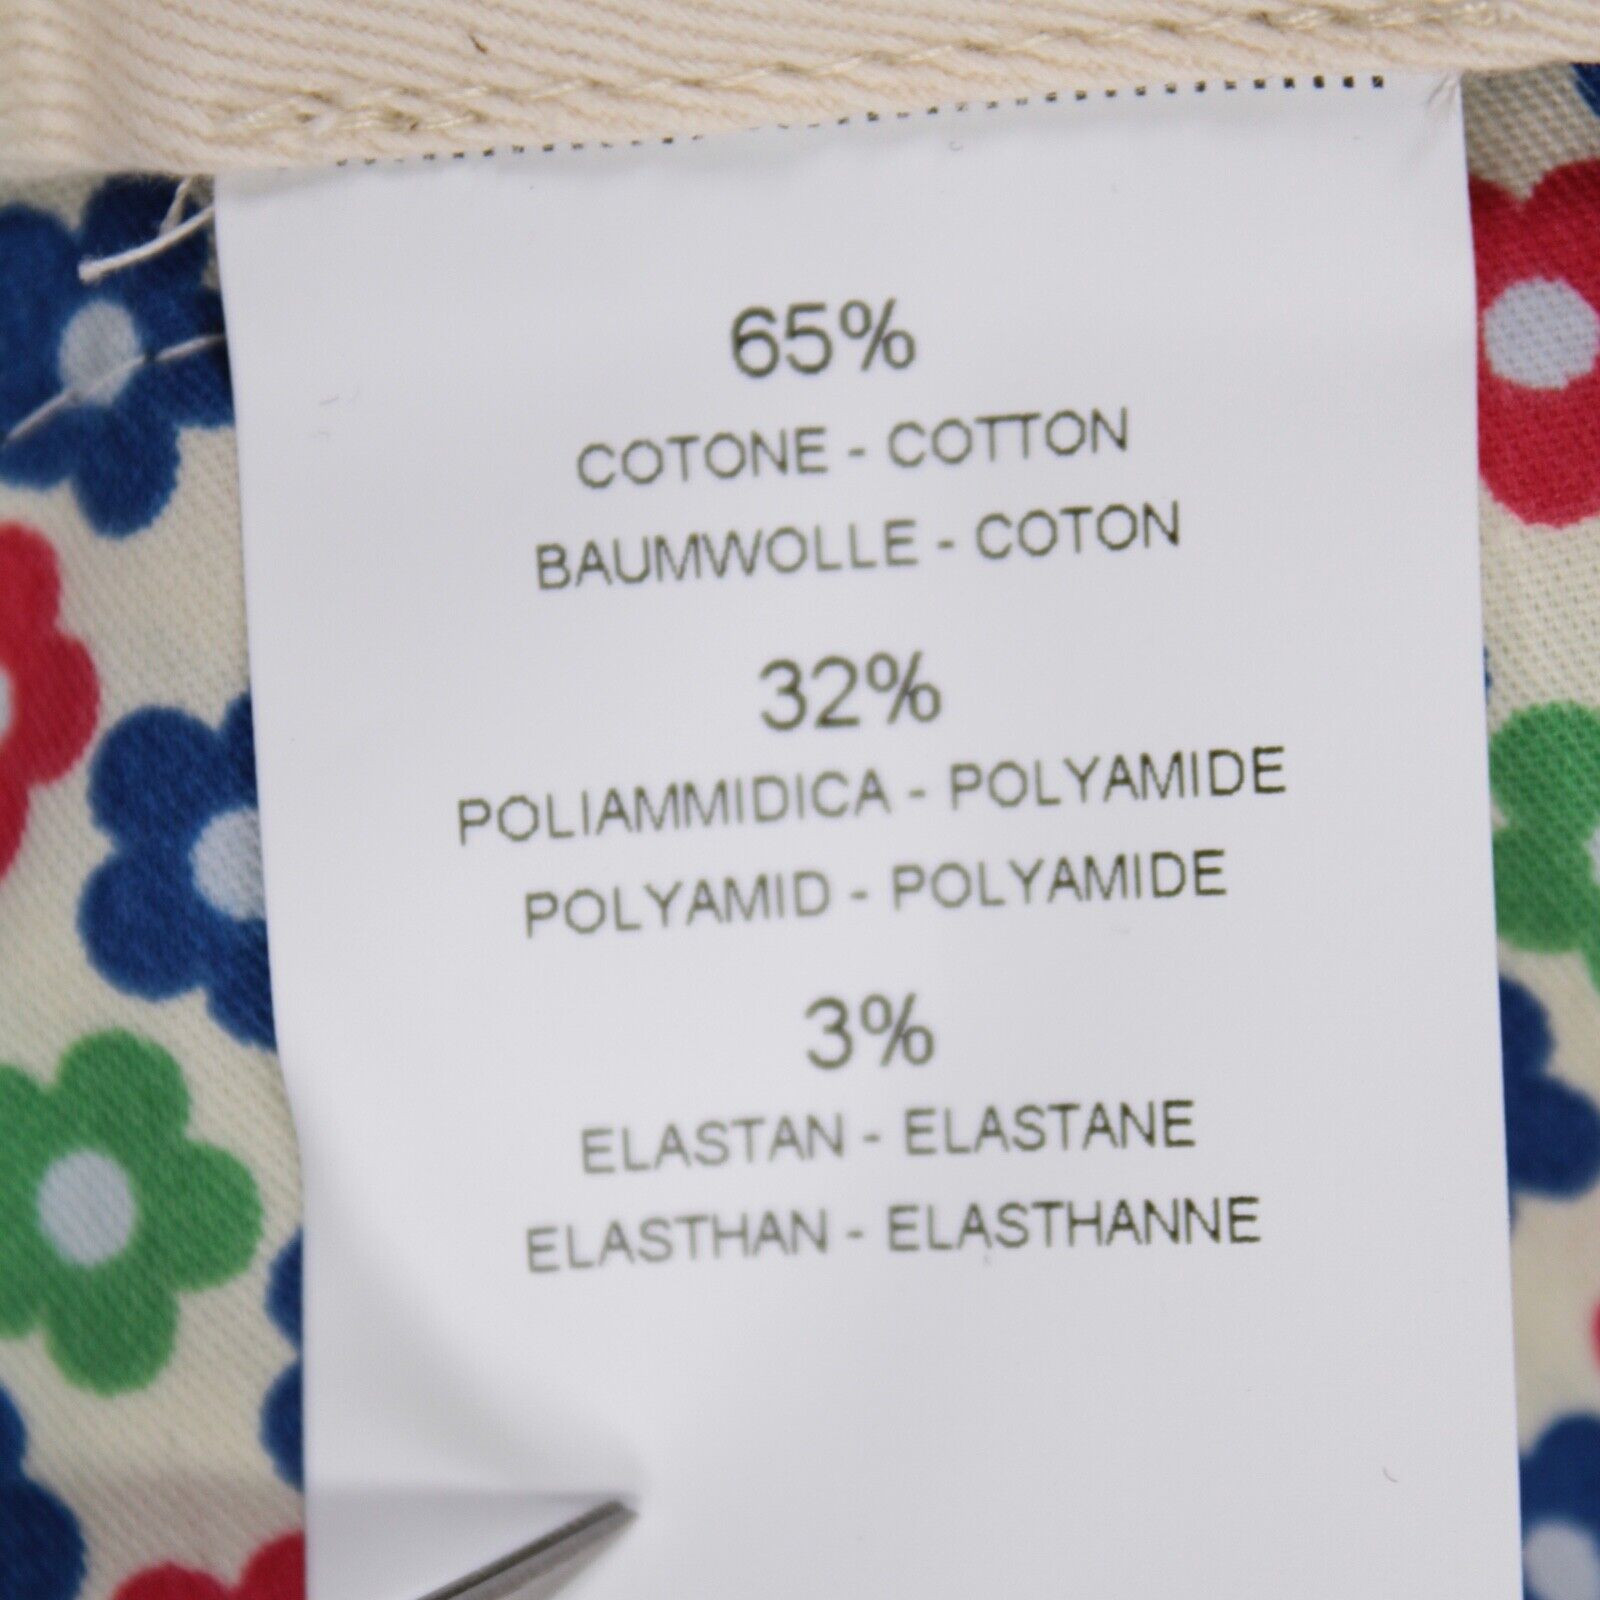 65%
COTONE - COTTON
BAUMWOLLE - COTON
32%
POLIAMMIDICA - POLYAMIDE
POLYAMID - POLYAMIDE
3%
ELASTAN - ELASTANE
ELASTHAN - ELASTHANNE